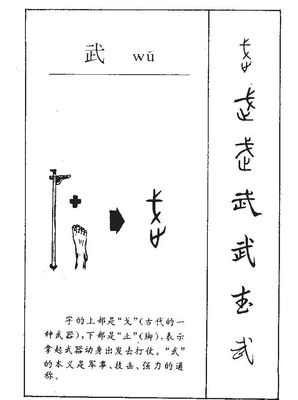 武 wǔ
字的上部是“戈”(古代的一
种武器),下部是“止”(脚),表示
拿起武器动身出发去打仗。“武”
的本义是军事、技击、强力的通
称。
武
武
武